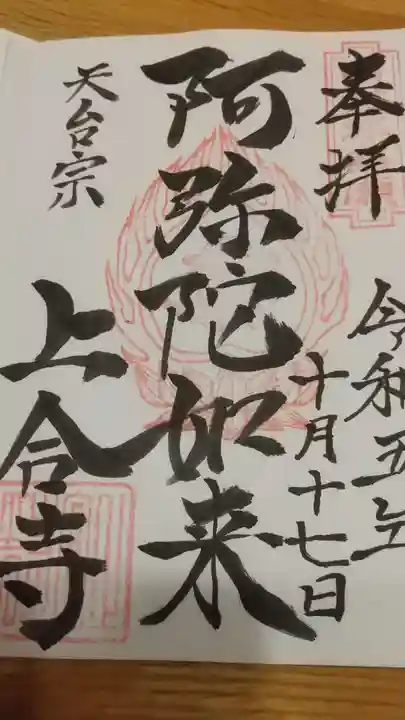 奉拝
令和五年
十月十七日
阿弥陀如来
天台宗
上合寺